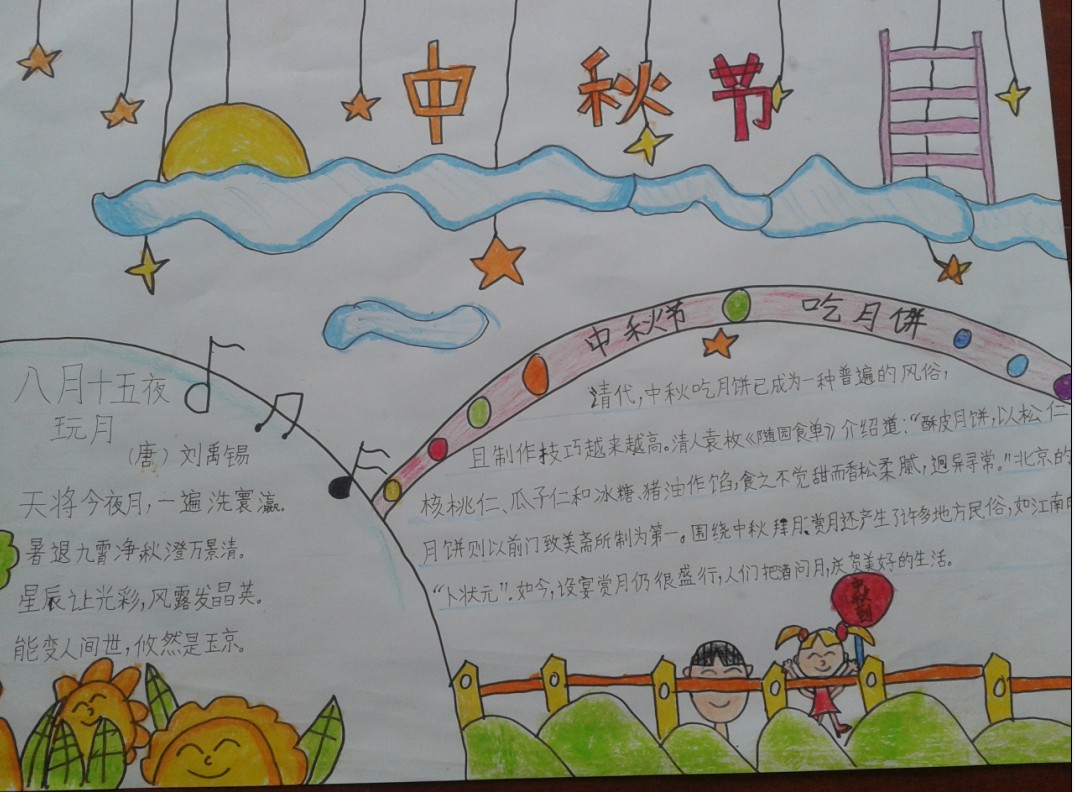 中秋节
中秋节 吃月饼
八月十五夜
玩月
（唐）刘禹锡
天将今夜月，一遍洗寰瀛。
暑退九霄净，秋澄万景清。
星辰让光彩，风露发晶英。
能变人间世，攸然是玉京。
清代，中秋吃月饼已成为一种普遍的风俗，
且制作技巧越来越高。清人袁枚《随园食单》介绍道：“酥皮月饼，以松仁
核桃仁、瓜子仁和冰糖、猪油作馅，食之不觉甜而香松柔腻，迥异寻常。”北京的
月饼则以前门致美斋所制为第一。围绕中秋拜月、赏月还产生了许多地方民俗，如江南的
“卜状元”。如今，设宴赏月仍很盛行，人们把酒问月，庆贺美好的生活。